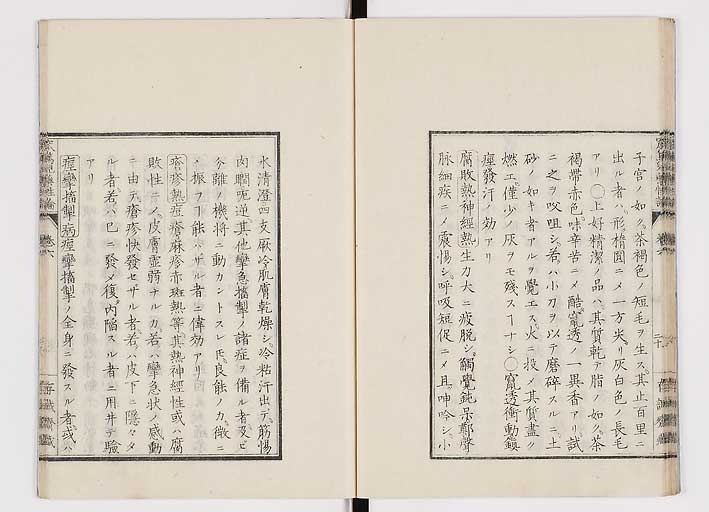 子宮ノ如ク。茶褐色ノ短毛ヲ生ス。其止百里ニ
出ル者ハ。形橢圓ニメ一方尖リ灰白色ノ長毛
アリ〇上好精潔ノ品ハ。其質乾テ脂ノ如ク。茶
褐帶赤色。味辛苦ニメ酷竄透ノ一異香アリ。試
ニ之ヲ咬咀シ。若ハ小刀ヲ以テ磨碎スルニ土
砂ノ如キ者アルヲ覺エス。火ニ投メ其質盡ク
燃エ僅少ノ灰ヲモ殘スヿナシ〇竄透衝動鎭
痙發汗ノ効アリ
腐敗熱神經熱生力大ニ疲脱シ。觸覺鈍呆鄭聲
脉細疾ニメ震慯シ。呼吸短促ニメ且呻吟シ。小
水清澄四支厥冷肌膚乾燥シ。冷粘汗出テ。筋慯
肉瞤呃逆其他攣急搐掣ノ諸症ヲ備ル者及ヒ
分離ノ機將ニ動カントスレ𪜈良能ノ力。微ニ
メ振フヿ能ハザル者ニ偉効アリ
瘡疹熱痘瘡麻疹赤斑熱等其熱神經性或ハ腐
敗性ニメ。皮膚虚弱ナルカ。若ハ攣急状ノ感動
ニ由テ瘡疹快發セザル者。若ハ皮下ニ隱々タ
ル者若ハ已ニ發メ復。内陷スル者ニ用井テ驗
アリ
痙攣搐掣病痙攣搐掣ノ全身ニ發スル者或ハ